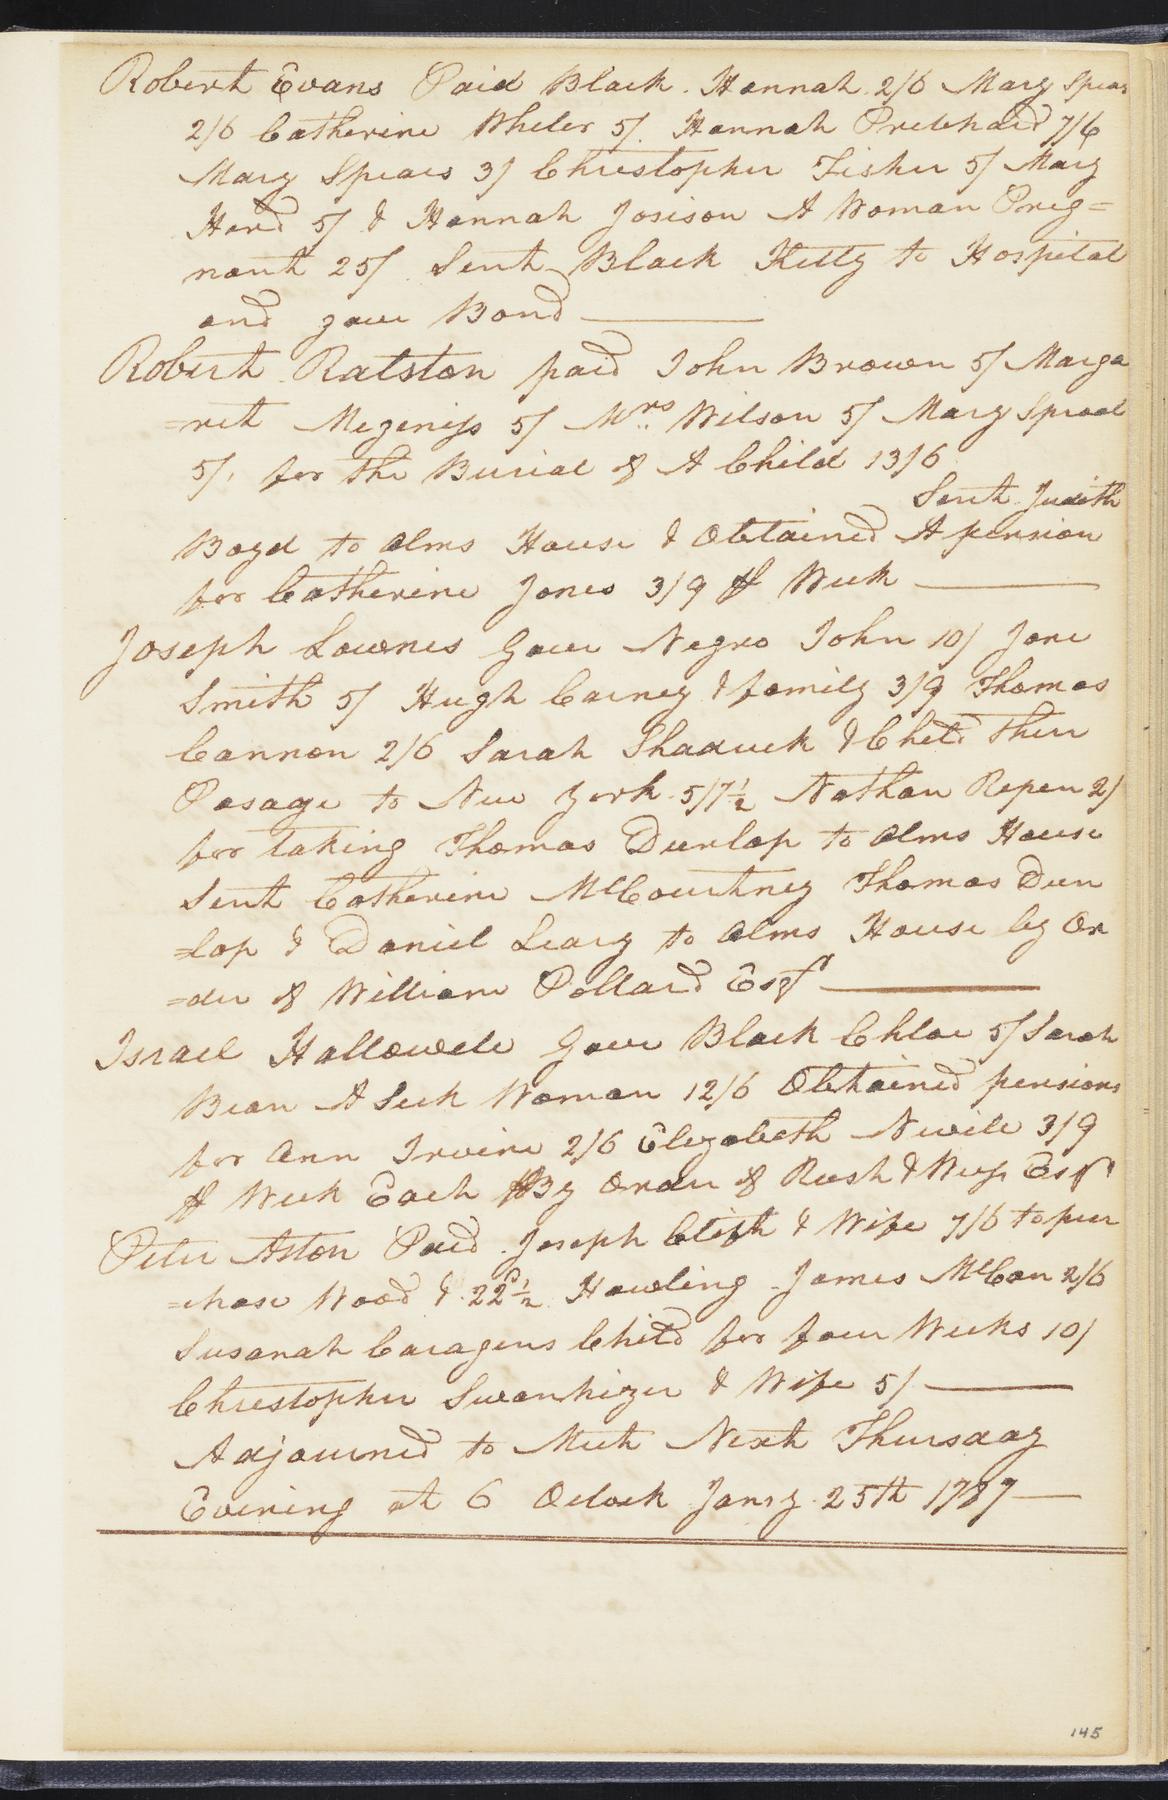 Robert Evans Paid Black Hannah 2/6 Mary Spears
2/6 Catherine Wheler 5/ Hannah Pretchard 7/6
Mary Spears 3/ Christopher Fisher 5/ Mary
Herd 5/ & Hannah Josison A Woman Preg=
nant 25/ Sent Black Kitty to Hospital
and gave Bond
Robert Ralston paid John Brown 5/ Marga
=ret Megeniss 5/ Mrs Wilson 5/ Mary Sproal
5/. for the Burial of A Child 13/6
Sent Judith
Boyd to Alms House & Obtained A pension
for Catherine Jones 3/9 ⅌ Week
Joseph Lownes Gave Negro John 10/ Jane
Smith 5/ Hugh Carney & family 3/9 Thomas
Cannon 2/6 Sarah Shaduck & Child their
Pasage to New York 5/7½ Nathan Repen 2/
for taking Thomas Dunlap to Alms House
Sent Catherine McCourtney Thomas Dun
=lop & Daniel Leary to Alms House by Or
=der of William Pollard Esqr
Israel Hallowele Gave Black Chloe 5/ Sarah
Bean A Seek Woman 12/6 Obtained pensions
for Ann Irvine 2/6 Elezabeth Nevile 3/9
⅌ Week Each By Order of Rush & Wess Esqr
Peter Aston Paid Joseph Clifh & Wife 7/6 to pur
=chase Wood & 22d½ Hawling James McCan 2/6
Susanah Caragens Child for four Weeks 10/
Christopher Swanhizer & Wife 5/
Adjourned to Meet Next Thursday
Evening at 6 Oclock Jany 25th 1787
145